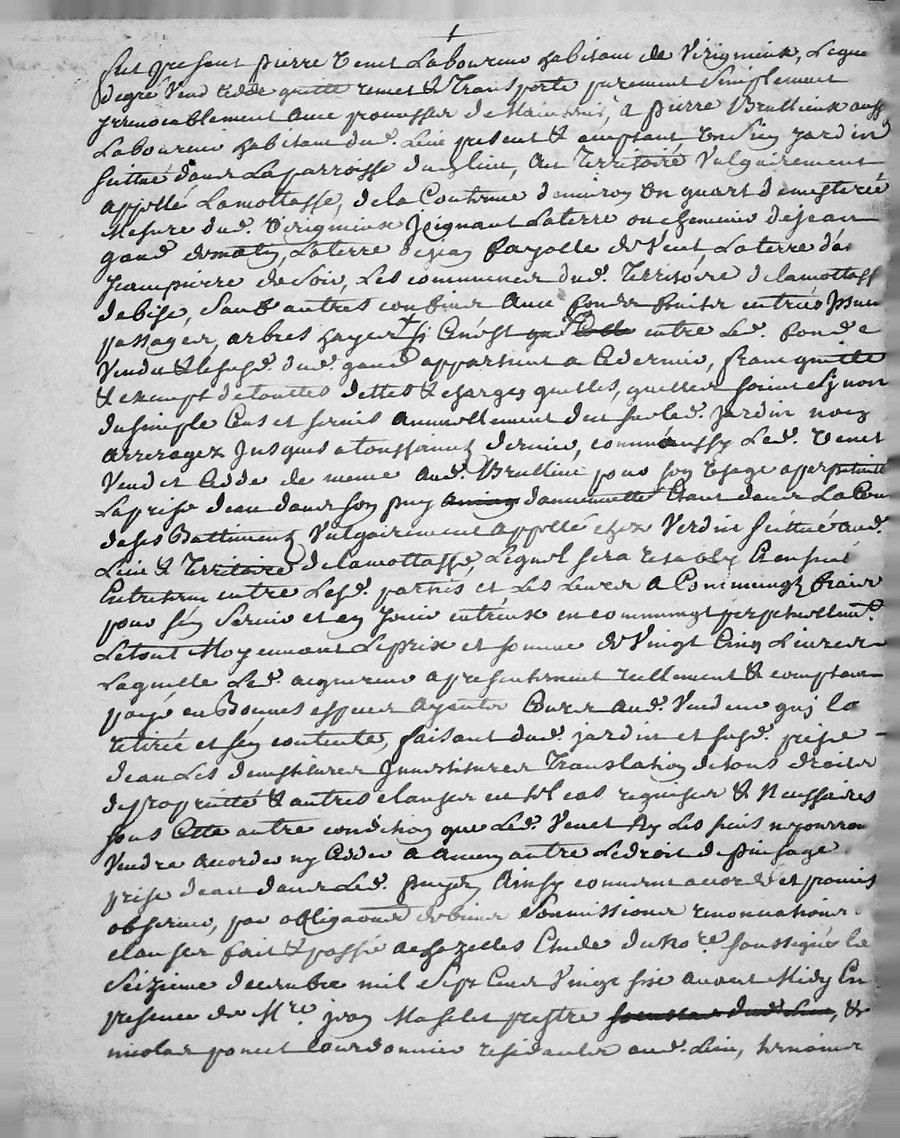 fut present pierre Venet Laboureur habitant de Virignieux, Leque
degré Vend cedde quitte remet & Transporte purement simplement
jrrevocablement avec promesse de Maintenir, a pierre Brullieux aussy
Laboureur habitant dud. Lieu present & acceptant un sien jardin
scittué dans La parroisse dud. lieu, au Territoire Vulgairement
appellé Lamottasse, de la Contenue denviron un quart de mesterée
Mesure dud. Virignieux Joignant La terre ou chemin de jean
gaud. de matin, La terre de jean fayolle de Vent, La terre de
jean pierre de Soir, Les communes dud. Territoire de lamottass
de bise, sauf autres confins avec fonds fruits entrées Jssue
passages, arbres hayes + si Ce n'est que entre Led. fond
Vendu & le susd. dud. gaud appartient a Ce dernier, franc quitte
& exempt de toutes dettes & charges quelles, quelles soient sinon
du simple Cens et servis annuellement deut sur led. jardin
arrerages jusques a toussaints dernier, comme aussy Led. Venet
Vend et Cedde de meme aud. Brullieu pour son Usage a perpetuité
La prise deau dans son puy étant dans La Cou
de ses Battiments Vulgairement appellé chez Verdier scittué aud.
Lieu & Territoire de lamottasse, Lequel sera retably Et ensuite
Entretenu entre Lesd. parties et Les Leurs a Communs frais
pour s'en servir et en jouir entreux en commung perpetuellemt.
Le tout Moyennant Le prix et somme de Vingt Cinq Livres
Laquelle Led. acquereur a presentement reellement & comptan
payé en Bonnes especes ayants Cours aud. Vendeur qui la
retirée et s'en contente, faisant dud. jardin et susd. prise
deau Les demettures Jnvestitures Translation de tous droits
de proprietté & autres clauses en tel cas requises & Necessaires
sous Cette autre condition que Led. Venet Ny Les siens ne pourron
Vendre accorder ny Cedder a aucun autre Le droit de puisage
prise deau dans Led. puy, Ainsy convenu accordé et promis
observer, par obligations de biens soumissions renonciations
clauses fait & passé a chazelles Etude du nore. soussigné le
Seizieme decembre mil Sept Cent Vingt six avant Midy En
presence de Mre. jean prestre &
nicolas poncet Cordonnier residants aud. Lieu, temoins